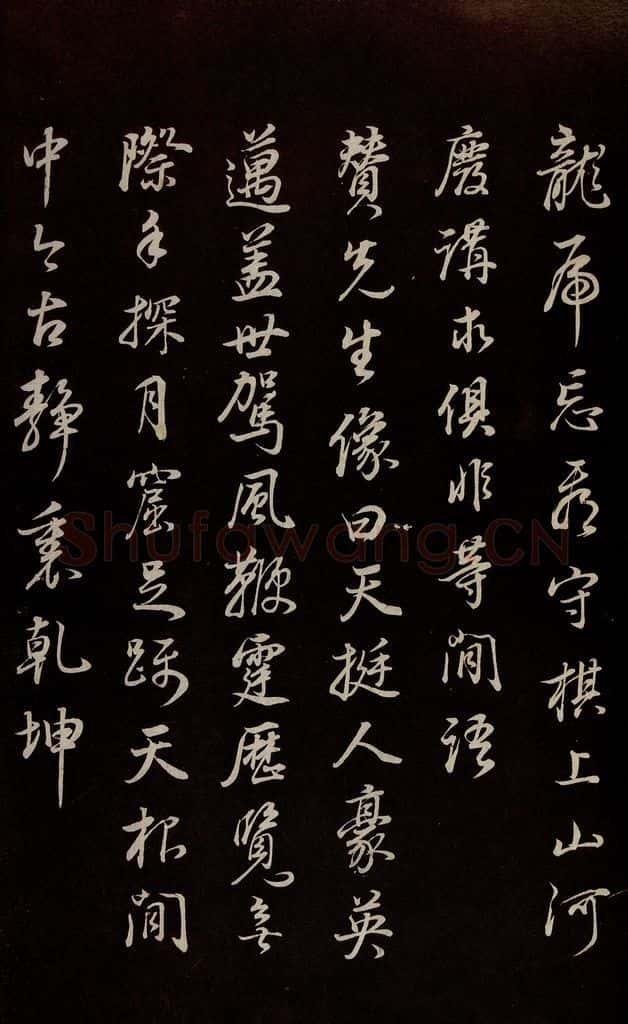 龍虎忘看守棋上山河
廢講求俱非等閒語
贊先生像曰天挺人豪英
邁盖世駕風鞭霆歷覽無
際手探月窟足躡天根閒
中今古靜裏乾坤
Shufawang.CN